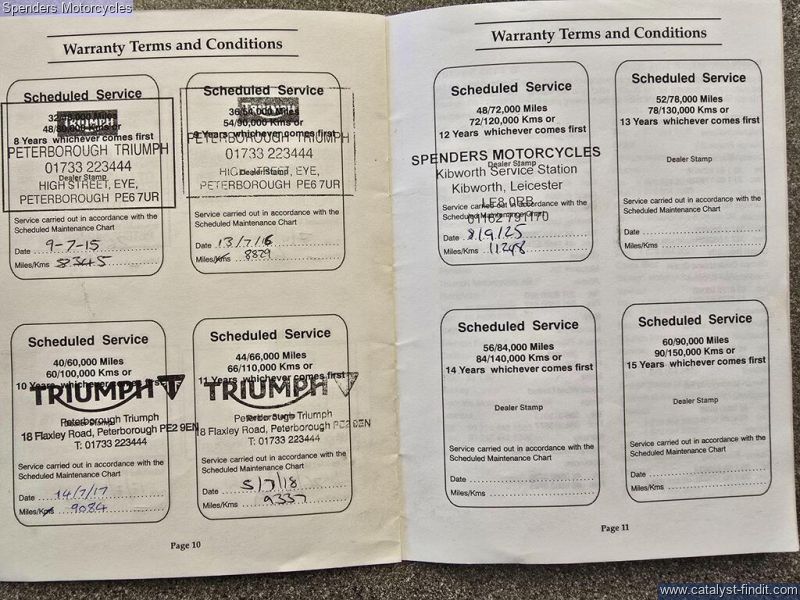 Spenders Motorcycles
Warranty Terms and Conditions
Scheduled Service
32/48,000 Miles
48/80,000 Kms or
8 Years whichever comes first
TRIUMPH
PETERBOROUGH TRIUMPH
01733 223444
Dealer Stamp
HIGH STREET, EYE,
PETERBOROUGH PE6 7UR
Service carried out in accordance with the
Scheduled Maintenance Chart
Date 9-7-15
Miles/Kms 8345
Scheduled Service
36/54,000 Miles
54/90,000 Kms or
9 Years whichever comes first
PETERBOROUGH TRIUMPH
01733 223444
Dealer Stamp
HIGH STREET, EYE,
PETERBOROUGH PE6 7UR
Service carried out in accordance with the
Scheduled Maintenance Chart
Date 13/7/16
Miles/Kms 8829
Scheduled Service
40/60,000 Miles
60/100,000 Kms or
10 Years whichever comes first
TRIUMPH
Peterborough Triumph
Dealer Stamp
18 Flaxley Road, Peterborough PE2 9EN
T: 01733 223444
Service carried out in accordance with the
Scheduled Maintenance Chart
Date 14/7/17
Miles/Kms 9084
Scheduled Service
44/66,000 Miles
66/110,000 Kms or
11 Years whichever comes first
TRIUMPH
Peterborough Triumph
Dealer Stamp
18 Flaxley Road, Peterborough PE2 9EN
T: 01733 223444
Service carried out in accordance with the
Scheduled Maintenance Chart
Date 5/7/18
Miles/Kms 9337
Page 10
Warranty Terms and Conditions
Scheduled Service
48/72,000 Miles
72/120,000 Kms or
12 Years whichever comes first
SPENDERS MOTORCYCLES
Dealer Stamp
Kibworth Service Station
Kibworth, Leicester
LE8 0RB
Service carried out in accordance with the
Scheduled Maintenance Chart
01162 791170
Date 8/9/25
Miles/Kms 11248
Scheduled Service
52/78,000 Miles
78/130,000 Kms or
13 Years whichever comes first
Dealer Stamp
Service carried out in accordance with the
Scheduled Maintenance Chart
Date
Miles/Kms
Scheduled Service
56/84,000 Miles
84/140,000 Kms or
14 Years whichever comes first
Dealer Stamp
Service carried out in accordance with the
Scheduled Maintenance Chart
Date
Miles/Kms
Scheduled Service
60/90,000 Miles
90/150,000 Kms or
15 Years whichever comes first
Dealer Stamp
Service carried out in accordance with the
Scheduled Maintenance Chart
Date
Miles/Kms
Page 11
www.catalyst-findit.com